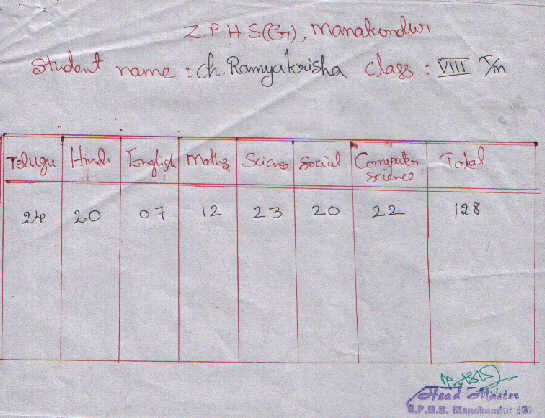 Z P H S(G), Manakondur
Student name : ch. Ramyakrisha class : VIII T/m
Telugu Hindi English Maths Science Social Computer Science Total
24 20 07 12 23 20 22 128
Head Master
Z.P.H.S. Manakondur (G)